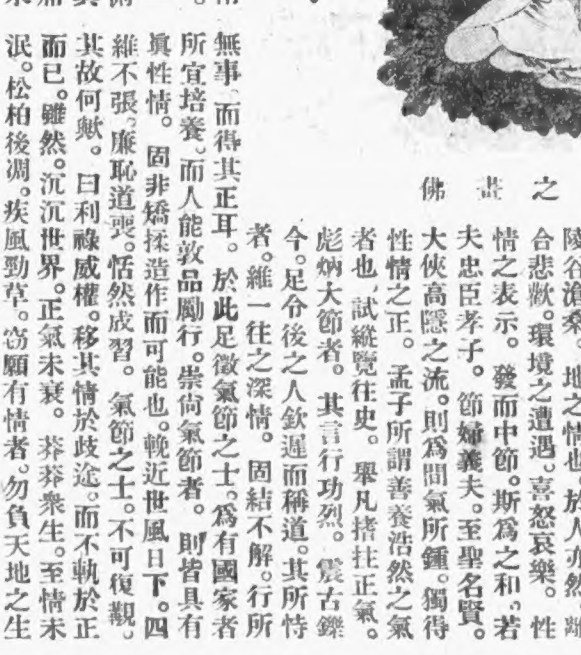 之畫佛
陵谷滄桑。地之情也。於人亦然。離
合悲歡。環境之遭遇。喜怒哀樂。性
情之表示。發而中節。斯爲之和。若
夫忠臣孝子。節婦義夫。至聖名賢。
大俠高隱之流。則爲間氣所鍾。獨得
性情之正。孟子所謂善養浩然之氣
者也。試縱覽往史。舉凡搘拄正氣。
彪炳大節者。其言行功烈。震古鑠
今。足令後之人欽遲而稱道。其所恃
者。維一往之深情。固結不解。行所
無事。而得其正耳。於此足徵氣節之士。爲有國家者
所宜培養。而人能敦品勵行。崇尚氣節者。則皆具有
眞性情。固非矯揉造作而可能也。輓近世風日下。四
維不張。廉恥道喪。恬然成習。氣節之士。不可復覩。
其故何歟。曰利祿威權。移其情於歧途。而不軌於正
而已。雖然。沉沉世界。正氣未衰。莽莽衆生。至情未
泯。松柏後凋。疾風勁草。竊願有情者。勿負天地之生